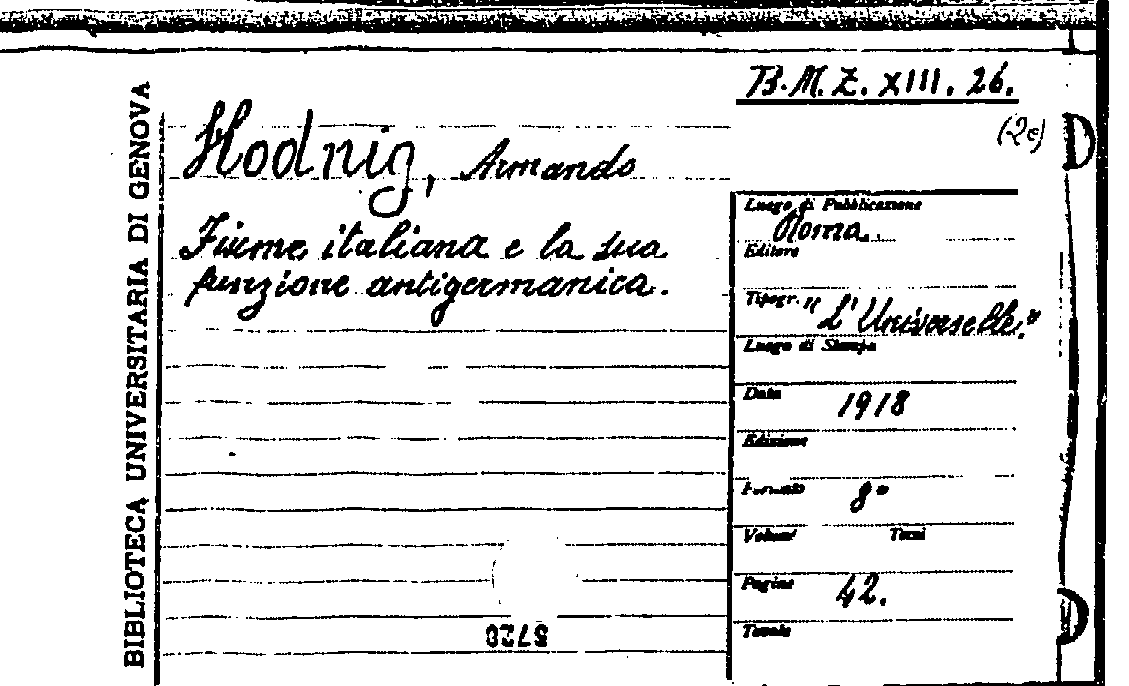 B.M.Z. XIII. 26.
(2e)
BIBLIOTECA UNIVERSITARIA DI GENOVA
Hodnig, Armando
Fiume italiana e la sua
funzione antigermanica.
Luogo di Pubblicazione
Roma.
Editore
Tipogr. "L'Universelle."
Luogo di Stampa
Data 1918
Edizione
Formato 8°
Volumi Tomi
Pagine 42.
Tavole